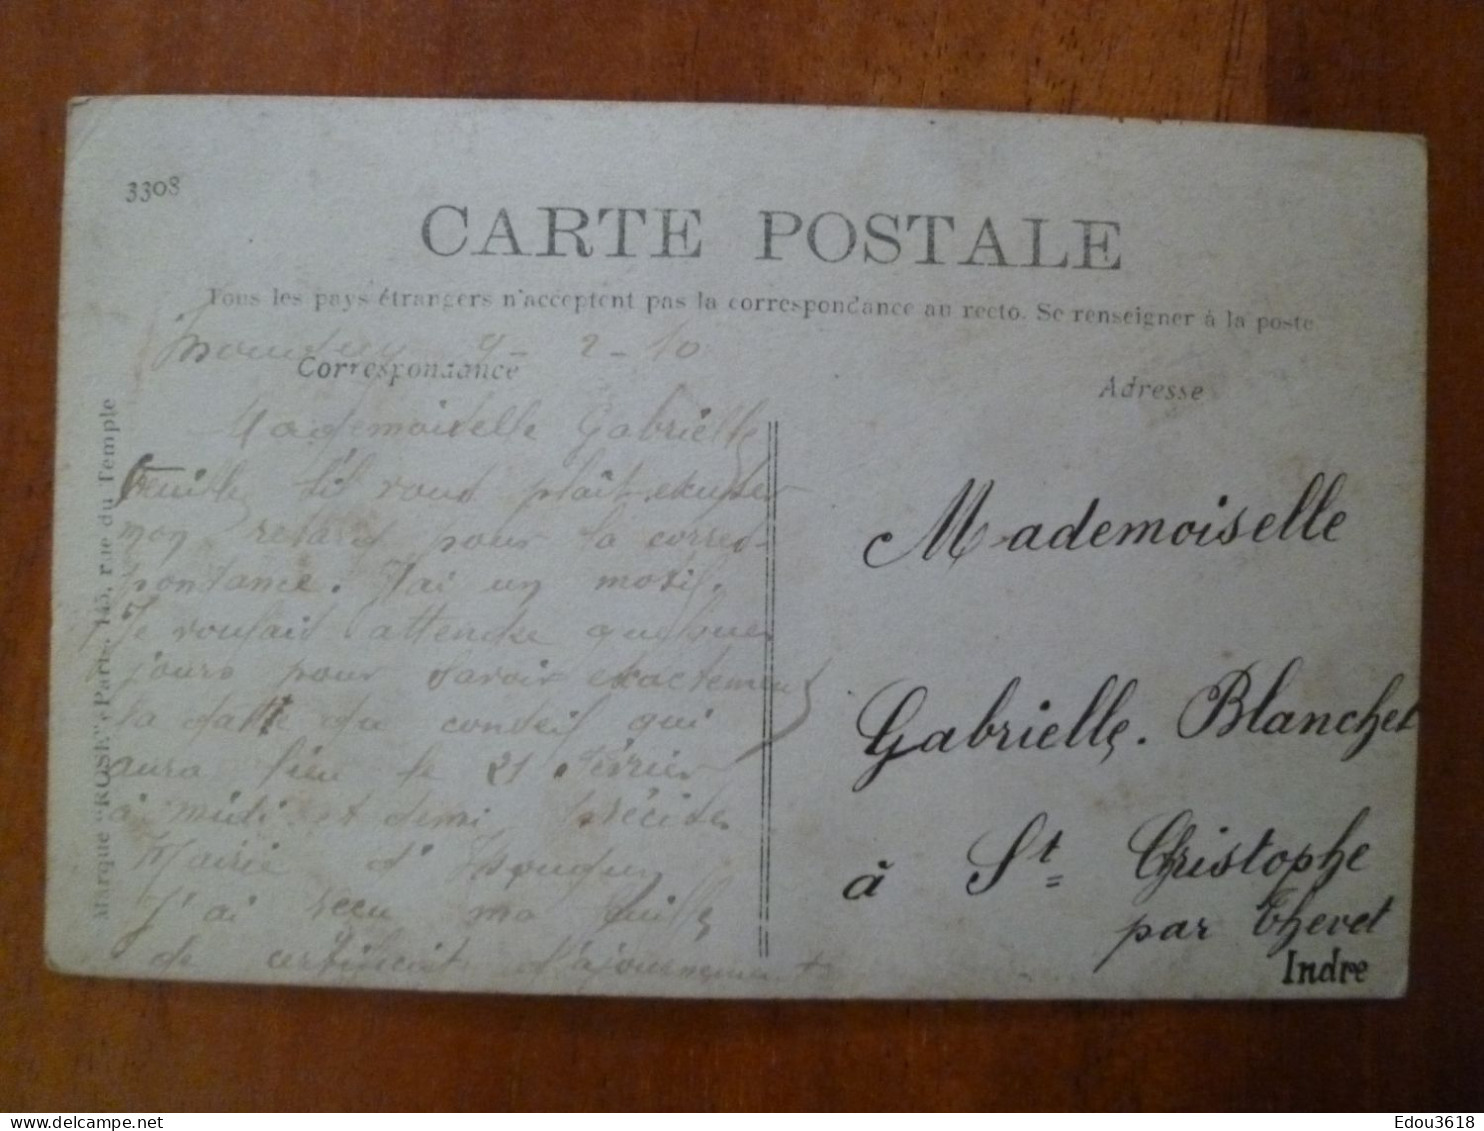 3308
CARTE POSTALE
Tous les pays étrangers n'acceptent pas la correspondance au recto. Se renseigner à la poste
9 - 2 - 10
Correspondance
Adresse
Mademoiselle Gabrielle
s'il vous plait excuser
mon retard pour la corres-
pondance. J'ai un motif.
Je voulais attendre quelques
jours pour savoir exactement
la datte du conseil qui
aura lieu le 21 Février
à midi et demi précides
Mairie d'Issoudun
J'ai reçu ma feuille
de certificat d'ajournement +
Marque "ROSE", Paris, 145, rue du Temple
Mademoiselle
Gabrielle. Blanchet
à St Christophe
par Thevet
Indre
Edou3618